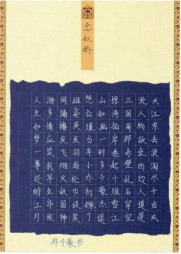 念奴娇
大江东去浪淘尽千古风
流人物故垒西边人道是
三国周郎赤壁乱石穿空
惊涛拍岸卷起千堆雪江
山如画一时多少豪杰遥
想公瑾当年小乔初嫁了
雄姿英发羽扇纶巾谈笑
间樯橹灰飞烟灭故国神
游多情应笑我早生华发
人生如梦一尊还酹江月
书